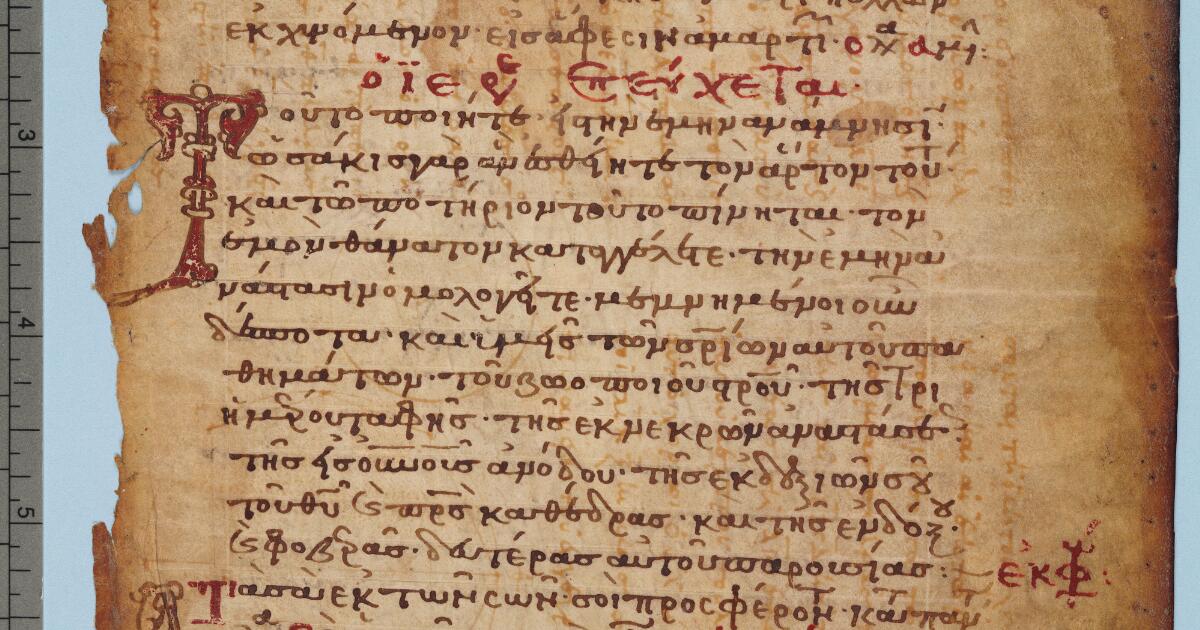 ἐκχυνόμενον εἰς ἄφεσιν ἁμαρτι· ὁ λα ἀμι:
ὁ ϊερε ἐπεύχεται·
Τοῦτο ποιῆτε· εἰ τὴν ἐμὴν ἀνάμνησι·
ὡσάκις γὰρ ἂν ἐσθείητε τὸν ἄρτον τοῦ·
καὶ τῶ ποτήριον τοῦτο πίνηται· τὸν
ἐμὸν θάνατον καταγγέλετε· τὴν ἐμὴν ἀ
νάστασιν ὁμολογεῖτε· μεμνημένοι οὖν
δέσποτα· καὶ ἡμεῖς τῶν σρίων αὐτοῦ πα
θημάτων· τοῦ ζωοποιοῦ στροῦ· τῆς τρι
ημέρου ταφῆς· τῆς ἐκ νεκρῶν ἀναστάσε·
τῆς εἰς οὐνοὺς ἀνόδου· τῆς ἐκ δεξιῶν σοῦ
τοῦ θυ καὶ πρς καθέδρας· καὶ τῆς ἐνδόξου·
καὶ φοβρᾶς· δευτέρας αὐτοῦ παρουσίας:
ἐκφ:
Τὰ σὰ ἐκ τῶν σῶν· σοὶ προσφέρον· κατ παν